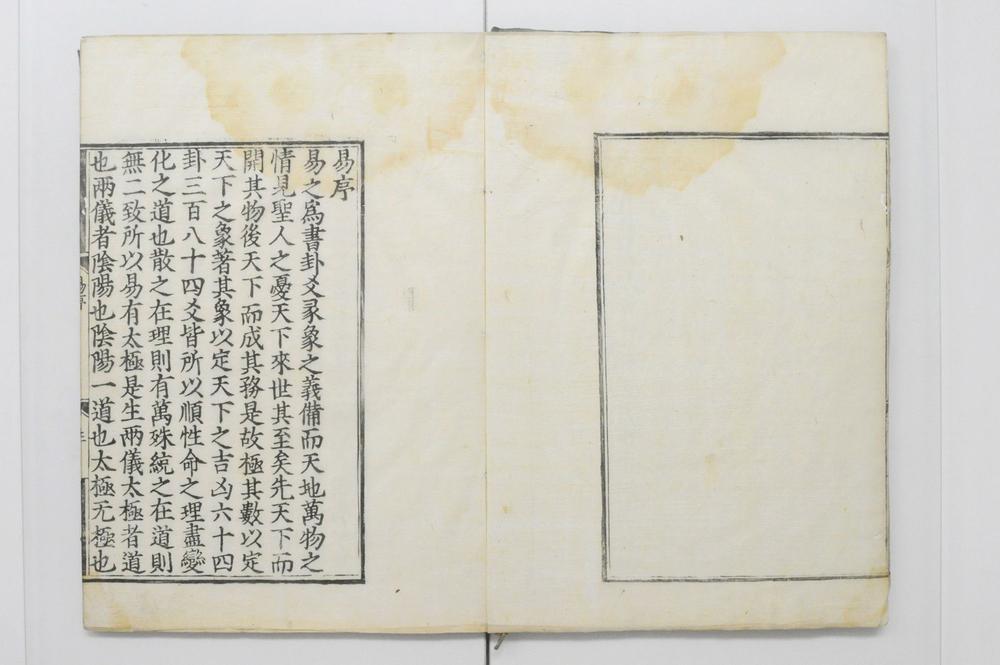 易序
易之爲書卦爻彖象之義備而天地萬物之
情見聖人之憂天下來世其至矣先天下而
開其物後天下而成其務是故極其數以定
天下之象著其象以定天下之吉凶六十四
卦三百八十四爻皆所以順性命之理盡變
化之道也散之在理則有萬殊統之在道則
無二致所以易有太極是生兩儀太極者道
也兩儀者陰陽也陰陽一道也太極无極也
易序